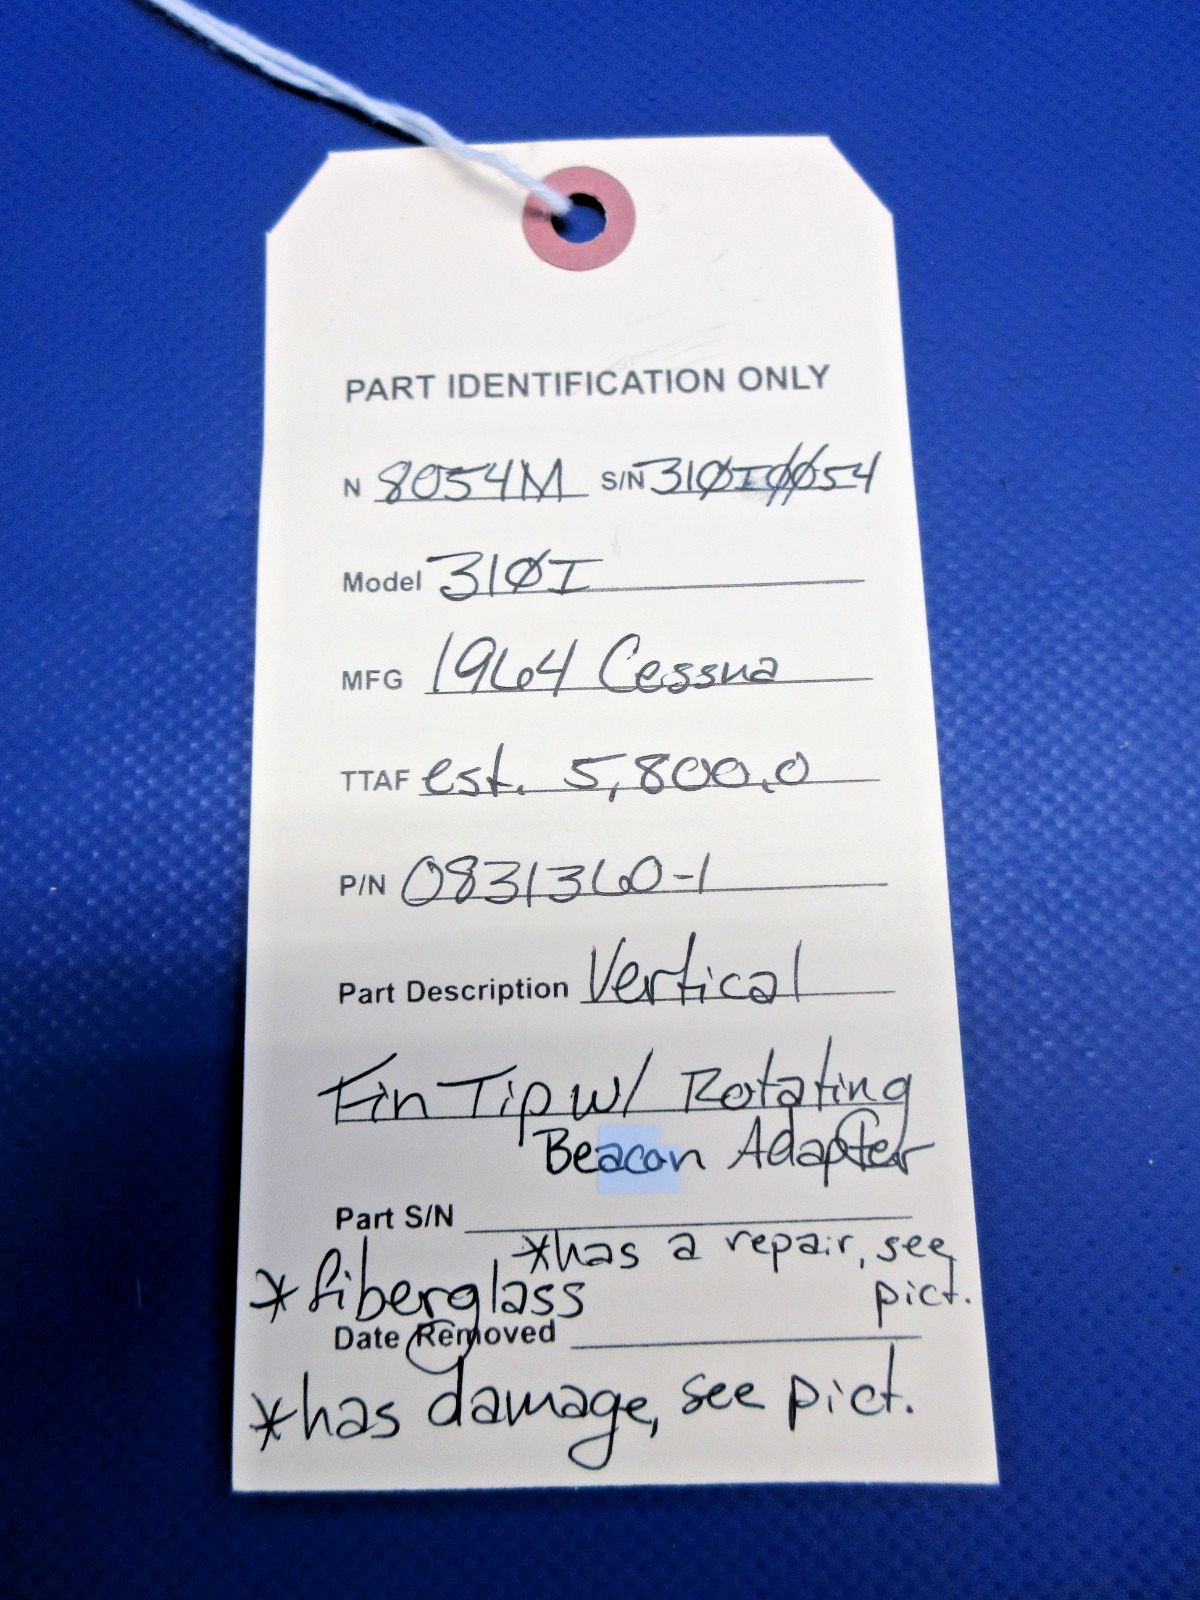 PART IDENTIFICATION ONLY
N 8054M S/N 310I0054
Model 310I
MFG 1964 Cessna
TTAF est. 5,800.0
P/N 0831360-1
Part Description Vertical
Fin Tip w/ Rotating
Beacon Adapter
Part S/N
*has a repair, see
pict.
*fiberglass
Date Removed
*has damage, see pict.